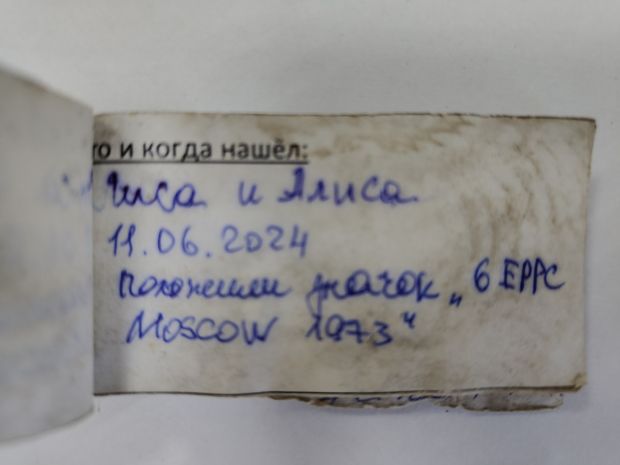 то и когда нашёл:
Чиса и Алиса
11.06.2024
положили значок „6 EPPC
MOSCOW 1973“